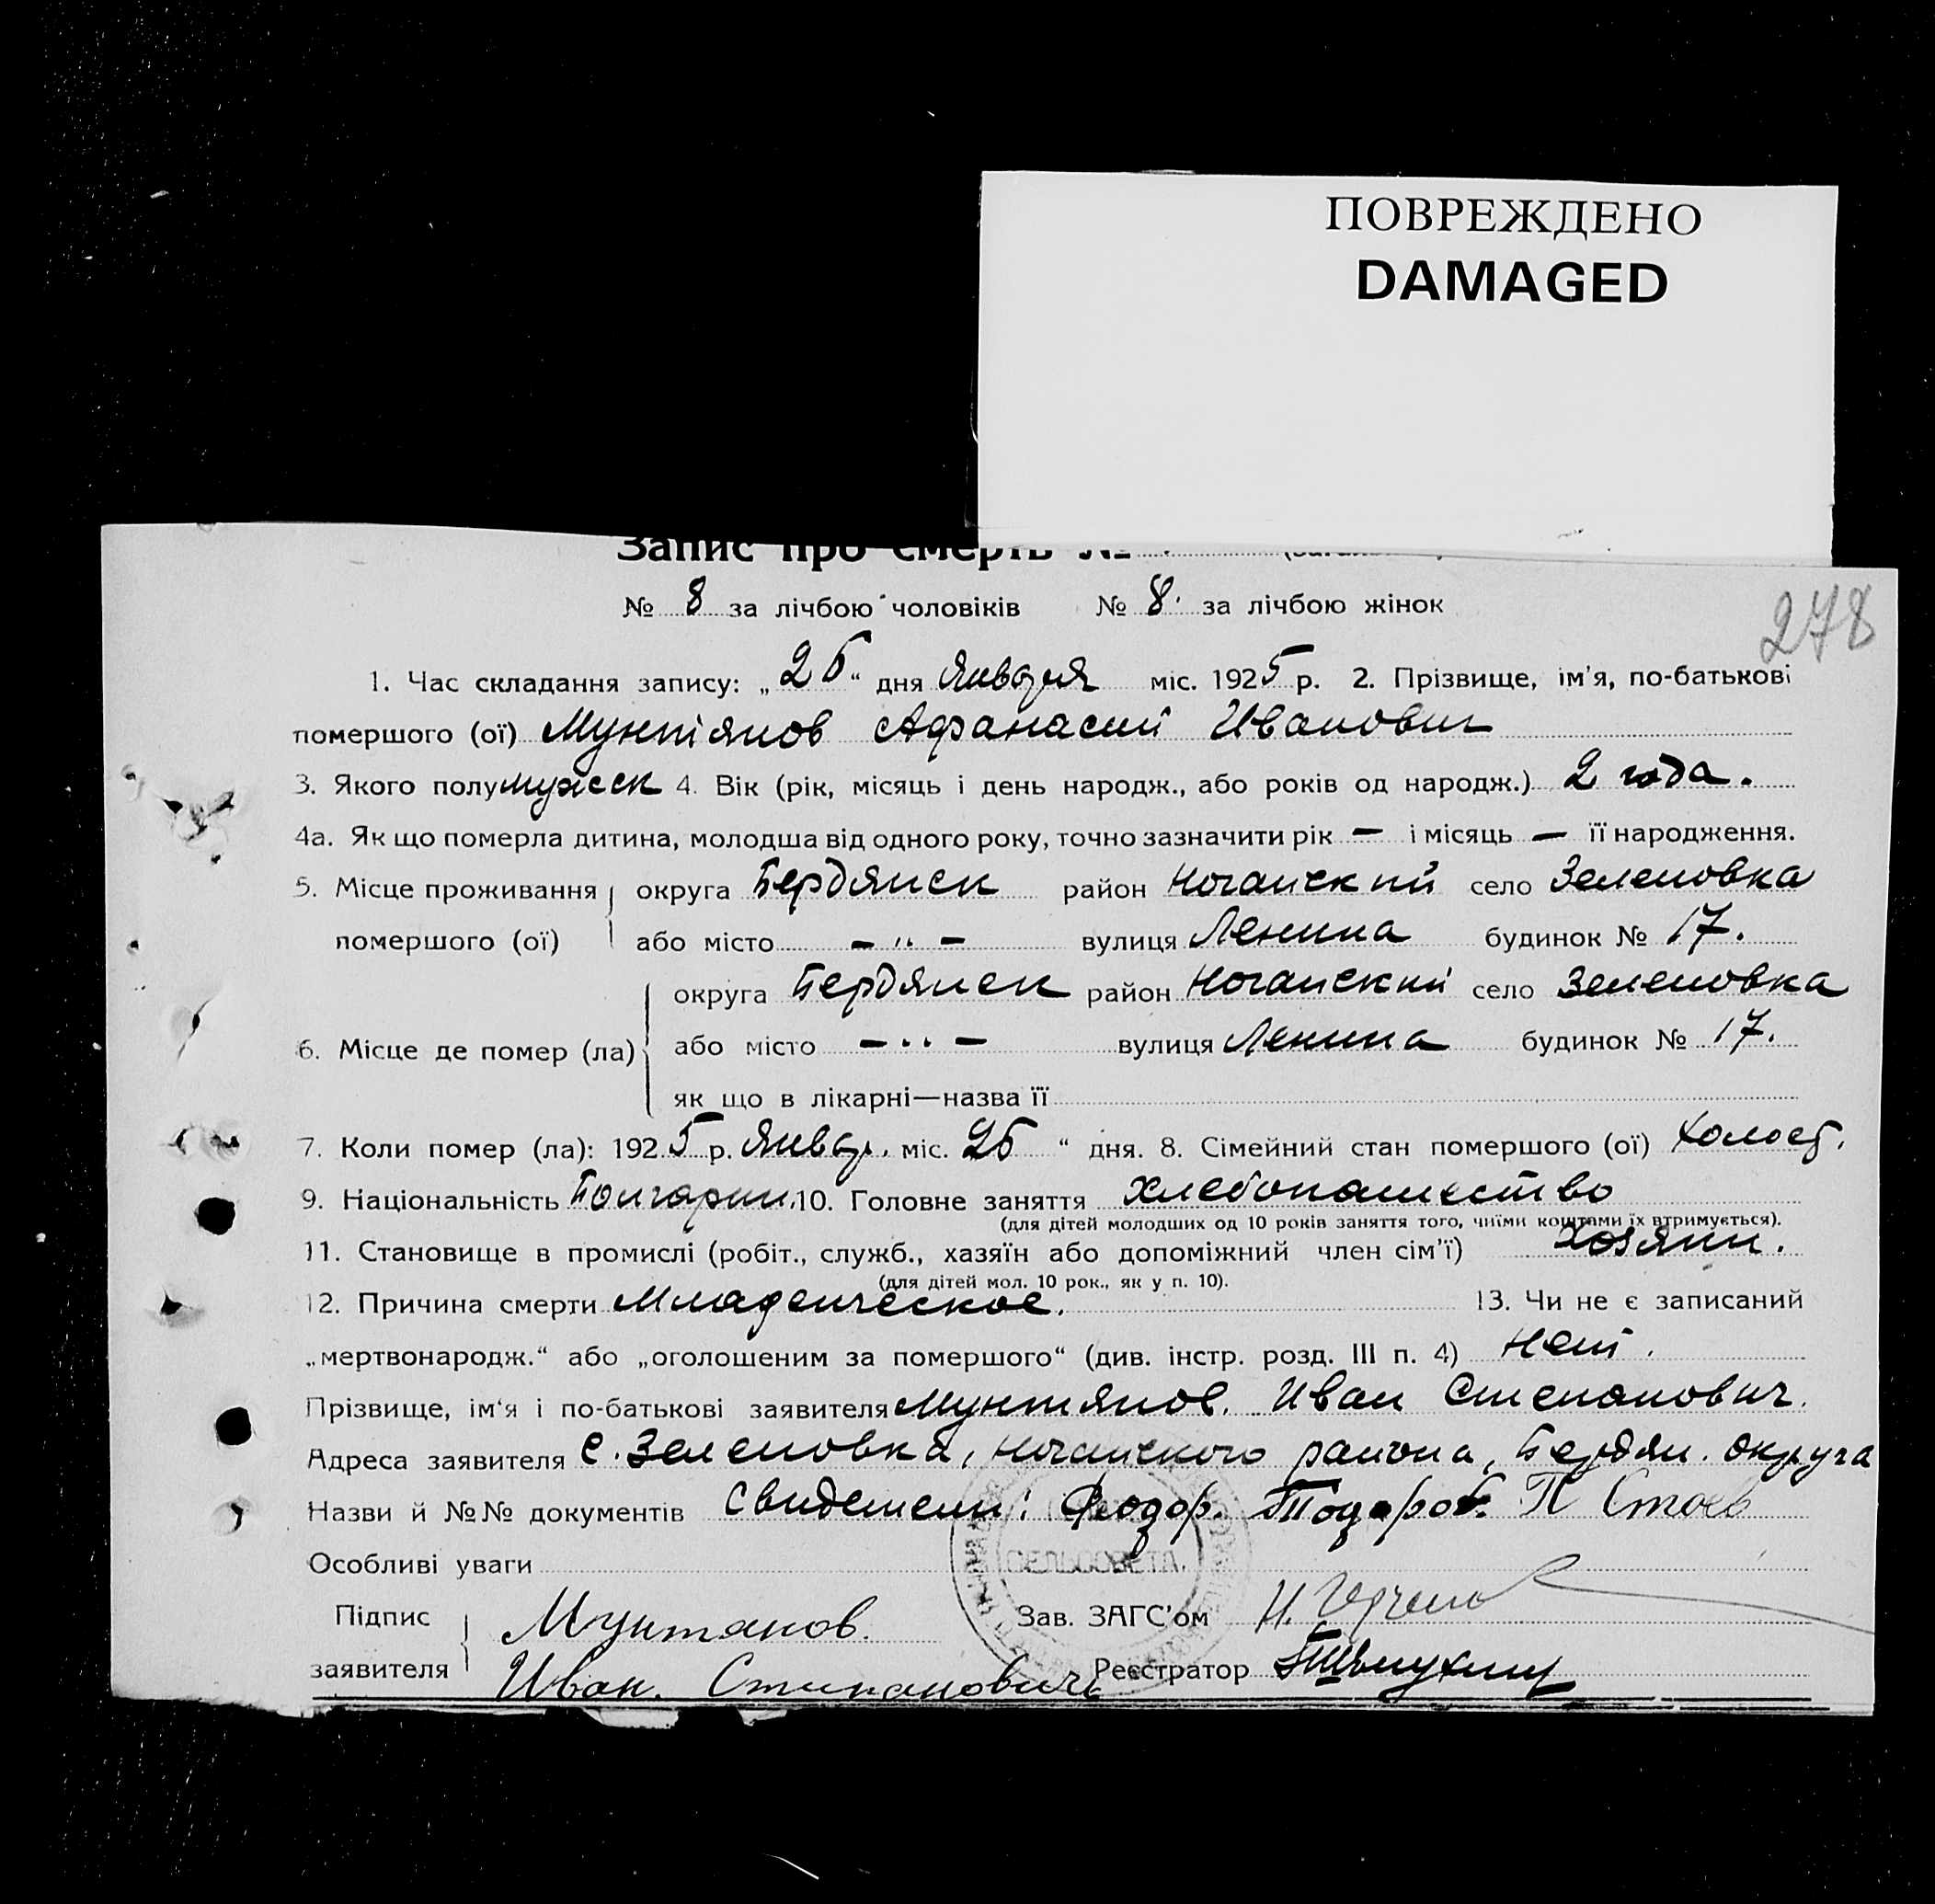 ПОВРЕЖДЕНО
DAMAGED
Запис про смерть №
278
№ 8 за лічбою чоловіків № 8. за лічбою жінок
1. Час складання запису: „26“ дня Января міс. 1925 р. 2. Прізвище, ім'я, по-батькові
помершого (ої) Мунтянов Афанасий Иванович
3. Якого полу мужск 4. Вік (рік, місяць і день народж., або років од народж.) 2 года.
4а. Як що померла дитина, молодша від одного року, точно зазначити рік — і місяць — її народження.
5. Місце проживання округа Бердянск район Ногайский село Зеленовка
помершого (ої) або місто — „ — вулиця Ленина будинок № 17.
округа Бердянск район Ногайский село Зеленовка
6. Місце де помер (ла) або місто — „ — вулиця Ленина будинок № 17.
як що в лікарні—назва її
7. Коли помер (ла): 1925 р. Январ. міс. 26 “ дня. 8. Сімейний стан помершого (ої) холост.
9. Національність Болгарин. 10. Головне заняття Хлебопашество
(для дітей молодших од 10 років заняття того, чиїми коштами їх втримується).
11. Становище в промислі (робіт., служб., хазяїн або допоміжний член сім'ї) Хозяин.
(для дітей мол. 10 рок., як у п. 10).
12. Причина смерти Младенческое. 13. Чи не є записаний
„мертвонародж.“ або „оголошеним за помершого“ (див. інстр. розд. III п. 4) Нет.
Прізвище, ім'я і по-батькові заявителя Мунтянов. Иван Степанович.
Адреса заявителя С. Зеленовка, Ногайского района, Бердян. округа
Назви й №№ документів Свидетели: Феодор. Тодоров. П Стоев
СЕЛЬСОВЕТА
Особливі уваги
Підпис Мунтанов. Зав. ЗАГС'ом Н.
заявителя Иван. Стипановичь Реєстратор